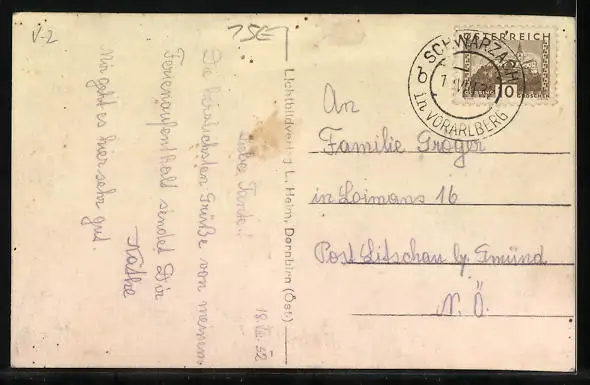 V-2
75E
18.VII.32
Liebe Tante!
Die herzlichsten Grüße von meinem
Ferienaufenthalt sendet Dir
Käthe
Mir geht es hier sehr gut.
Lichtbildverlag L. Heim, Dornbirn (Öst.)
ÖSTERREICH
10
GROSCHEN
SCHWARZACH
in VORARLBERG
An
Familie Groger
in Loimans 16
Post Litschau b/ Gmünd
N. Ö.